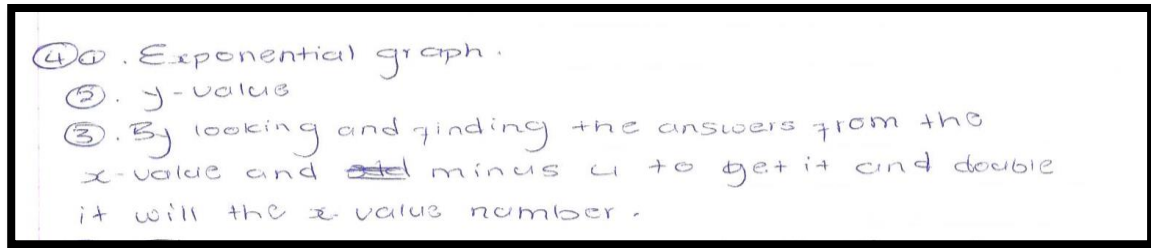 ④①. Exponential graph.
②. y-value
③. By looking and finding the answers from the
x-value and minus 4 to get it and double
it will the x-value number.